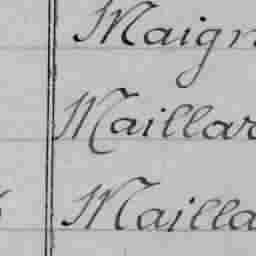 Maign
Maillar
Mailla